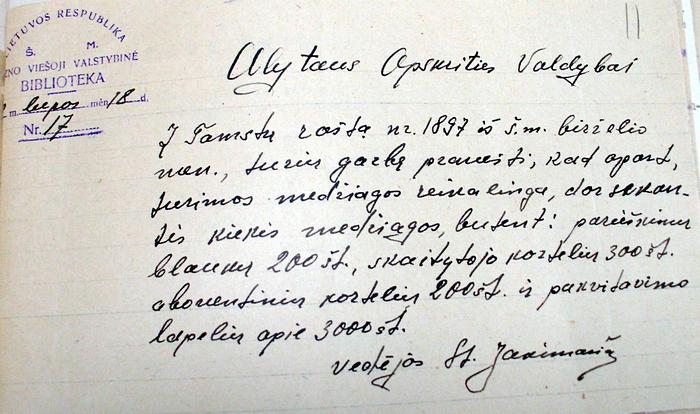 11
LIETUVOS RESPUBLIKA
Š. M.
VIEŠOJI VALSTYBINĖ
BIBLIOTEKA
m. liepos mėn 18 d.
Nr. 17
Alytaus Apskrities Valdybai
Į Tamstų raštą nr. 1897 iš š.m. birželio
mėn., turiu garbę pranešti, kad apart,
turimos medžiagos reikalinga, dar sekan-
tis kiekis medžiagos, būtent: pareiškimų
blankų 200 št., skaitytojo kortelių 300 št.
abonentinių kortelių 200 št. ir pakvitavimo
lapelių apie 3000 št.
Vedėjas St.